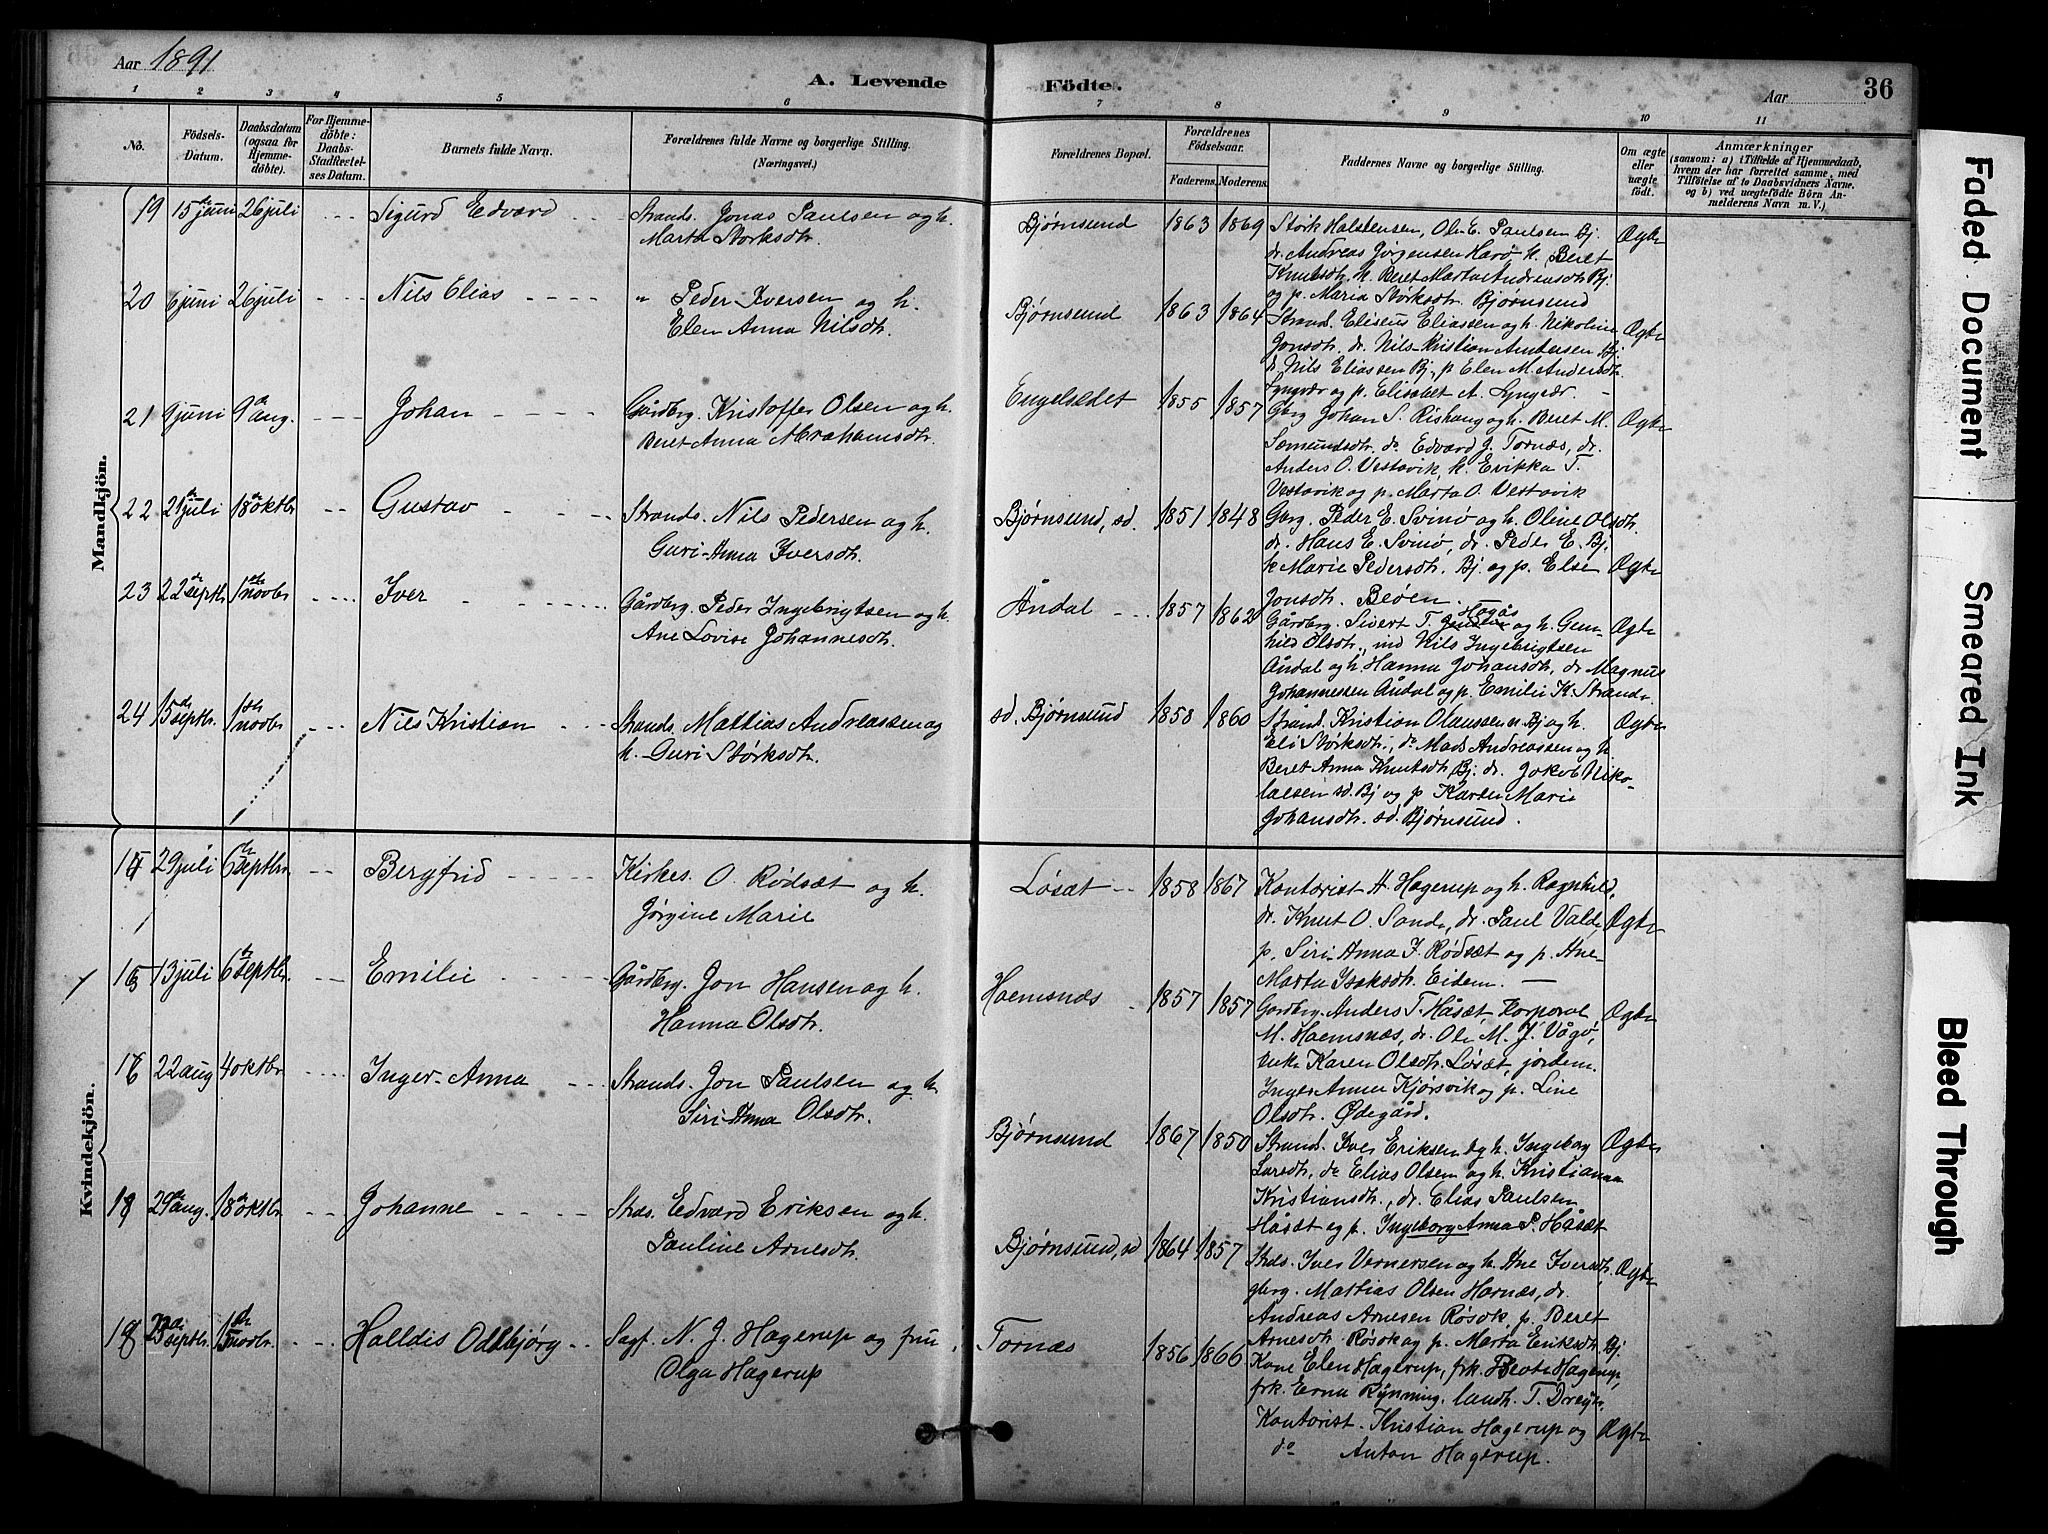 Aar 1891
A. Levende Födte.
Aar 36
1 2 3 4 5 6 7 8 9 10 11
No.
Födsels-Datum.
Daabsdatum (ogsaa for Hjemme-döbte).
For Hjemme-döbte: Daabs-Stadfæstel-ses Datum.
Barnets fulde Navn.
Forældrenes fulde Navne og borgerlige Stilling. (Næringsvei.)
Forældrenes Bopæl.
Forældrenes Födselsaar.
Faderens. Moderens.
Faddernes Navne og borgerlige Stilling.
Om ægte eller uægte födt.
Anmærkninger
(saasom: a) i Tilfælde af Hjemmedaab, hvem der har forrettet samme, med Tilföielse af to Daabsvidners Navne, og b) ved uægtefödte Börn An-melderens Navn m. V.)
Mandkjön.
19 15de juni 26 juli Sigurd Edvard Strands. Jonas Paulsen og h.
Marta Størksdtr.
Bjørnsund 1863 1869 Størk Halstensen, Ole E. Paulsen Bj.
dr. Andreas Jørgensen Harø, k. Beret
Knutsdtr. k. Beret Marta Andreasdtr Bj.
og p. Maria Størksdtr. Bjørnsund
Ægte
20 6 juni 26 juli Nils Elias " Peder Iversen og h.
Elen Anna Nilsdtr.
Bjørnsund 1863 1864 Strand. Eliseus Eliassen og h. Nikoline
Jonsdtr. dr. Nils Kristian Andersen Bj.
d. Nils Eliassen Bj., p. Elen M. Andersdtr.
Lyngvær og p. Elisabet A. Lyngvær.
Ægte
21 9 juni 9de aug. Johan Gårdbg. Kristoffer Olsen og h.
Beret Anna Abrahamsdtr.
Engelsædet 1855 1857 Gbrg. Johan S. Rishaug og h. Beret M.
Sæmundsdtr. do Edvard J. Tornæs, dr.
Anders O. Vestavik k. Erikka T.
Vestavik og p. Marta O. Vestavik
Ægte
22 21de juli 18de oktbr Gustav Strands. Nils Pedersen og h.
Guri-Anna Iversdtr.
Bjørnsund, sd. 1851 1848 Gbrg. Peder E. Svinø og h. Oline Olsdtr.
dr. Hans E. Svinø, dr. Peder E. Bj.
k. Marie Pedersdtr. Bj. og p. Else
Jonsdtr. Beøen.
Ægte
23 22de septbr 1ste novbr Iver Gårdbrg. Peder Ingebrigtsen og h.
Ane Lovise Johannesdtr.
Åndal 1857 1862 Gårdbrg. Sivert T. Hogås og h. Gun-
hild Olsdtr., ind Nils Ingebrigtsen
Åndal og h. Hanna Johansdtr, dr. Magnus
Johannessen Åndal og p. Emilie K. Strande
Ægte
24 15de septbr. 1ste novbr Nils Kristian Strands. Mattias Andreassen og
h. Guri Størksdtr.
sd. Bjørnsund 1858 1860 Strand. Kristian Olaussen n. Bj og h.
Eli Størksdtr., do Mads Andreassen og h.
Beret Anna Knutsdtr Bj. dr. Jakob Niko-
laisen sd. Bj og p Karen Marie
Johansdtr. sd. Bjørnsund.
Ægte
Kvindekjön.
14 29 juli 6te septbr. Bergfrid Kirkes. O. Rødsæt og h.
Jørgine Marie
Løsæt 1858 1867 Kontorist H. Hagerup og h. Ragnhild,
dr. Knut O. Sande, dr. Paul Valde
p. Siri-Anna J. Rødsæt og p. Ane-
Marta Isaksdtr. Eidem.
Ægte
15 13 juli 6te septbr. Emilie Gårdbrg. Jon Hansen og h.
Hanna Olsdtr.
Haemsnæs 1857 1857 Gardbrg. Anders T. Håsæt, Korporal
M. Haemsnæs, dr. Ole M. J. Vågø,
enke Karen Olsdtr. Løsæt, jordem.
Inger Anna Kjørsvik og p. Line
Olsdtr. Ødegård.
Ægte
16 22 aug 4 oktbr Inger-Anna Strands. Jon Paulsen og h
Siri-Anna Olsdtr.
Bjørnsund 1867 1850 Strand. Iver Eriksen og h. Ingeborg
Larsdtr., do Elias Olsen og h. Kristianna
Kristiansdtr., dr. Elias Paulsen
Håsæt og p. Ingeborg Anna P. Håsæt
Ægte
17 29de aug. 18de oktbr. Johanne Strds. Edvard Eriksen og h.
Pauline Arnesdtr.
Bjørnsund, sd 1864 1857 Strds. Iver Vernersen og h. Ane Iversdtr,
gbrg. Mattias Olsen Harnæs, dr.
Andreas Arnesen Røsok, p. Beret
Arnesdtr. Røsok og p. Marta Eriksdtr. Bj.
Ægte
18 23de septbr. 15de novbr. Halldis Oddbjørg Sagf. N. J. Hagerup og fru
Olga Hagerup
Tornæs 1856 1866 Kone Elen Hagerup, frk. Beate Hagerup,
frk. Erna Rynning, landh. T. Dreyer,
Kontorist. Kristian Hagerup og
do Anton Hagerup.
Ægte
Faded Document
Smeared Ink
Bleed Through